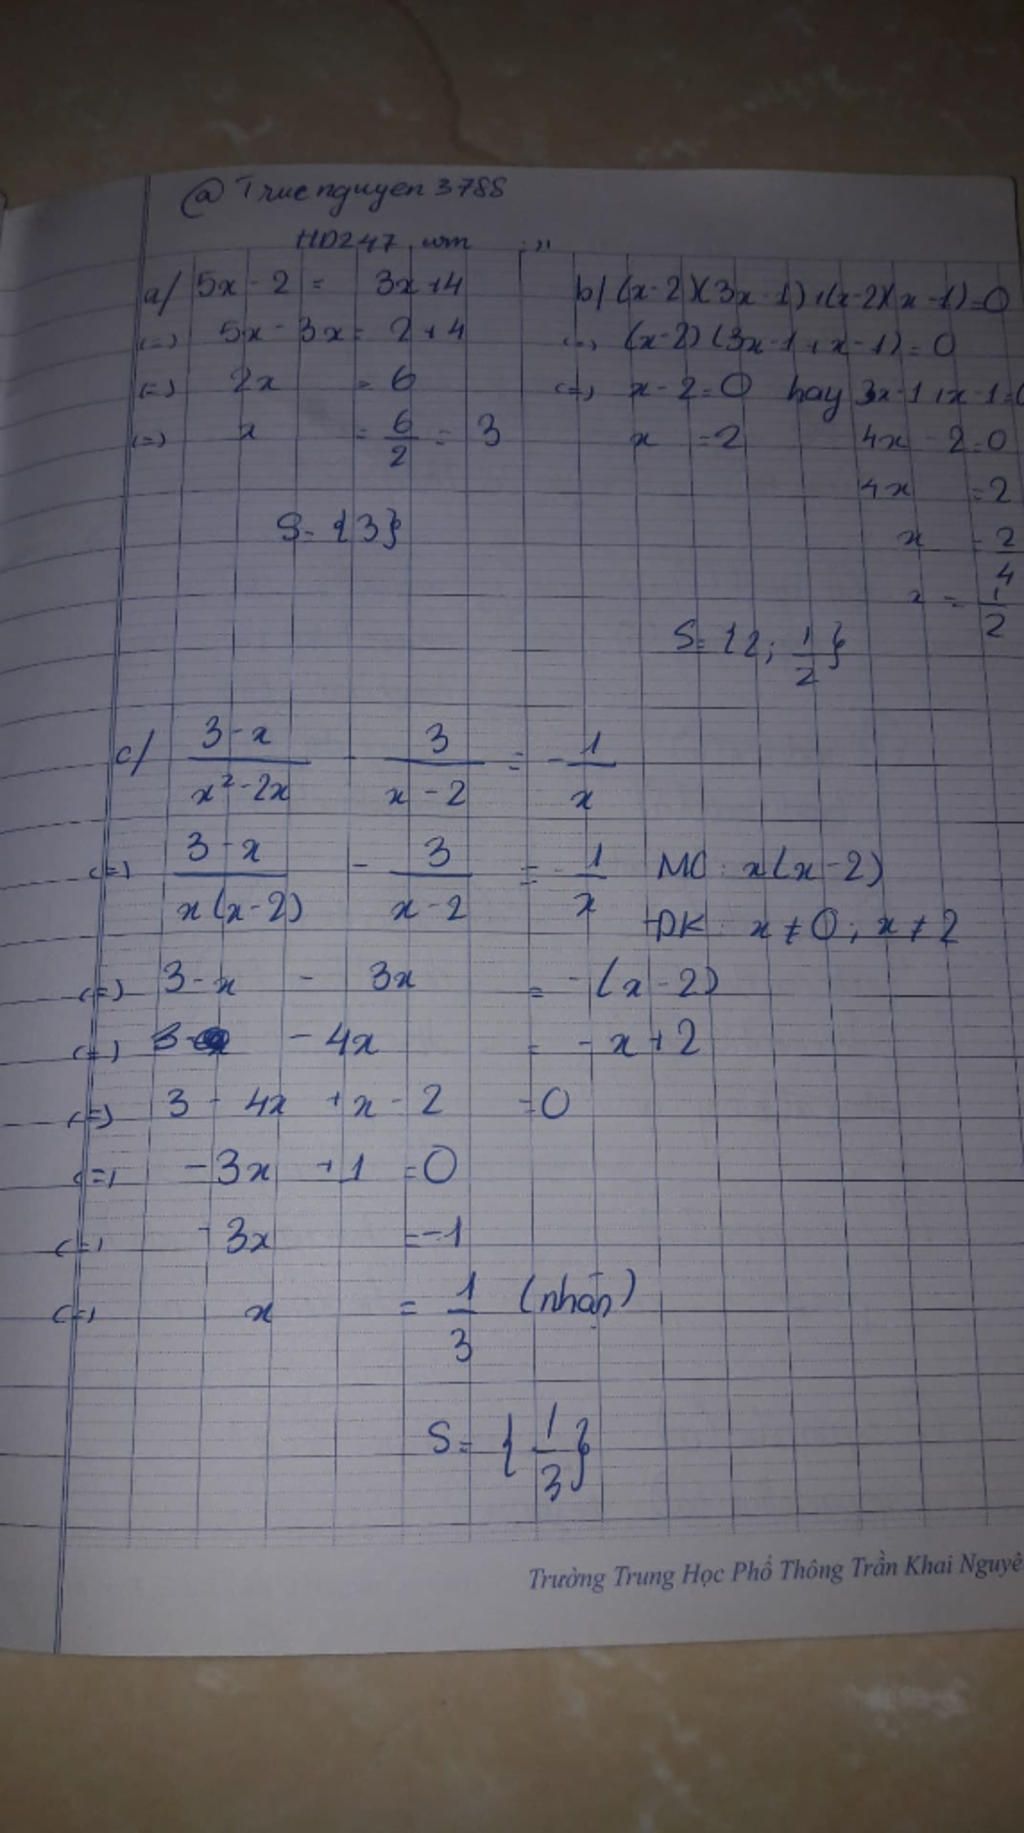 @ Trucnguyen3788
HD247
a/ 5x - 2 = 3x + 4
(=) 5x - 3x = 2 + 4
(=) 2x = 6
(=) x = 6/2 = 3
S = {3}
b/ (x-2)(3x-1)+(x-2)(x-1)=0
(=) (x-2)(3x-1+x-1)=0
(=) x-2=0 hay 3x-1+x-1=0
x = 2 4x - 2 = 0
4x = 2
x = 2/4
x = 1/2
S = {2; 1/2}
c/ 3-x/x²-2x - 3/x-2 = -1/x
(=) 3-x/x(x-2) - 3/x-2 = -1/x MC: x(x-2)
ĐK: x ≠ 0; x ≠ 2
(=) 3-x - 3x = -(x-2)
(=) 3 - 4x = -x+2
(=) 3 - 4x + x - 2 = 0
(=) -3x + 1 = 0
(=) -3x = -1
(=) x = 1/3 (nhận)
S = {1/3}
Trường Trung Học Phổ Thông Trần Khai Nguyê